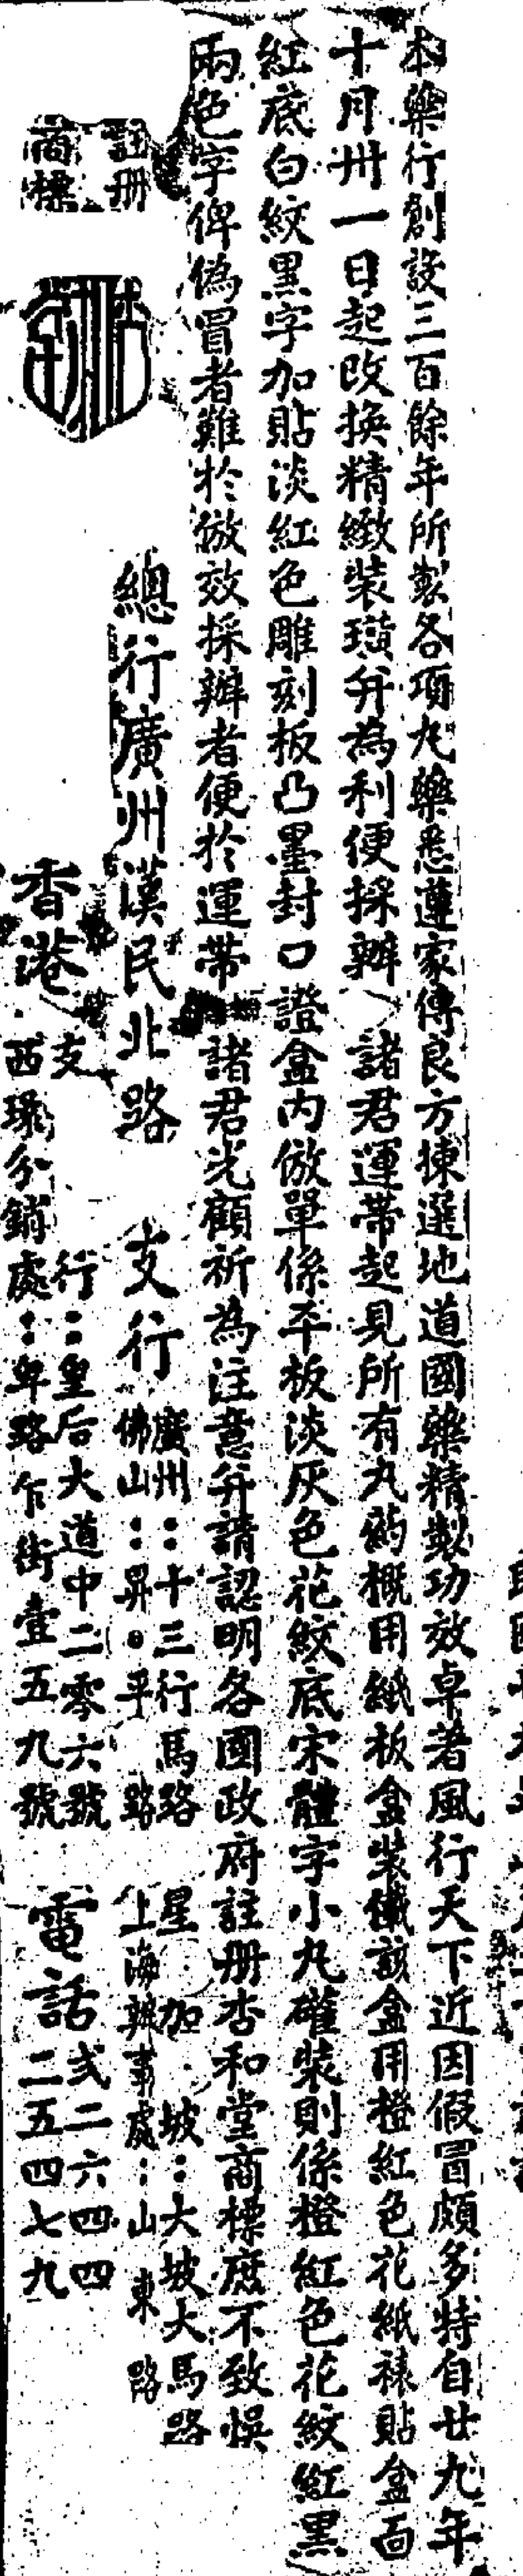 本藥行創設三百餘年所製各項丸藥悉遵家傳良方揀選地道國藥精製功效卓著風行天下近因假冒頗多特自廿九年
十月卅一日起改換精緻裝璜幷為利便採辦 諸君運帶起見所有丸藥概用紙板盒裝儎該盒用橙紅色花紙裱貼盒面
紅底白紋黑字加貼淡紅色雕刻板凸墨封口證盒內倣單係平板淡灰色花紋底宋體字小丸罐裝則係橙紅色花紋紅黑
兩色字俾偽冒者難於倣效採辦者便於運帶 諸君光顧祈為注意幷請認明各國政府註册杏和堂商標庶不致悞
註册
商標
總行廣州漢民北路 支行
廣州：十三行馬路
佛山：昇平路
星加坡：大坡大馬路
上海辦事處：山東路
香港
支行：皇后大道中二零六號
西環分銷處：卑路乍街壹五九號
電話
弍二六四四
二五四七九